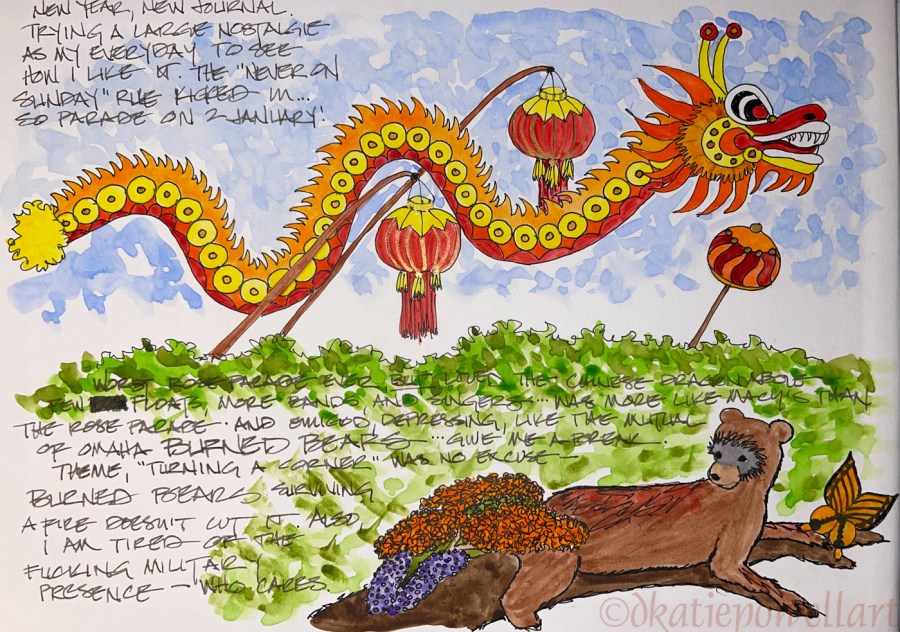 NEW YEAR, NEW JOURNAL.
TRYING A LARGE NOSTALGIE
AS MY EVERYDAY TO SEE
HOW I LIKE IT. THE "NEVER ON
SUNDAY" RULE KICKED IN...
SO PARADE ON 2 JANUARY!
WORST ROSE PARADE EVER BUT LOVED THE CHINESE DRAGON ABOVE
FEW FLOATS, MORE BANDS AND SINGERS... WAS MORE LIKE MACY'S THAN
THE ROSE PARADE. AND DEPRESSING, LIKE THE MUTUAL
OF OMAHA BURNED BEARS... GIVE ME A BREAK.
THEME, "TURNING A CORNER" WAS NO EXCUSE
BURNED BEARS SURVIVING
A FIRE DOESN'T CUT IT. ALSO,
I AM TIRED OF THE
FUCKING MILITARY
PRESENCE — WHO CARES.
©dkatiepowellart